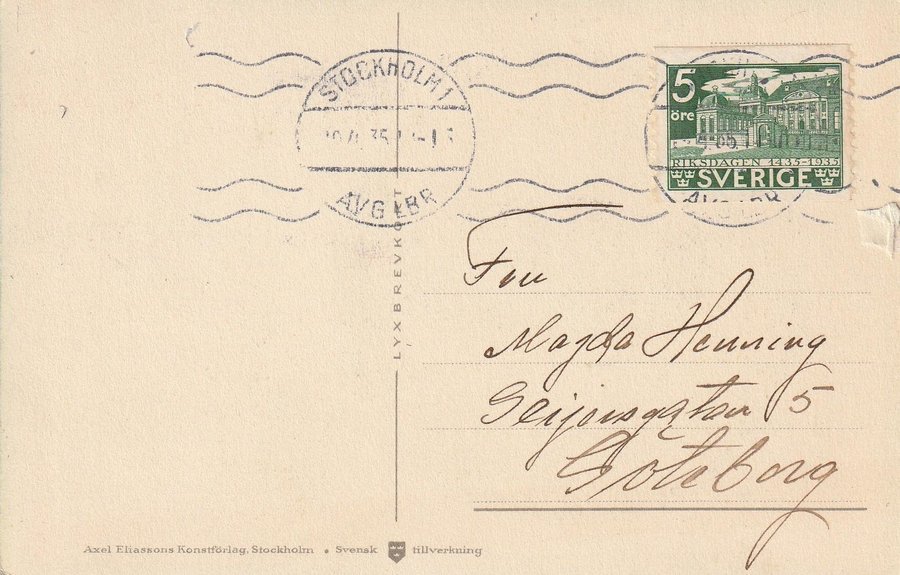 STOCKHOLM 1
AVG LBR
5
öre
RIKSDAGEN 1435-1935
SVERIGE
LYXBREVKORT
Fru
Magda Henning
Geijersgatan 5
Göteborg
Axel Eliassons Konstförlag, Stockholm • Svensk tillverkning